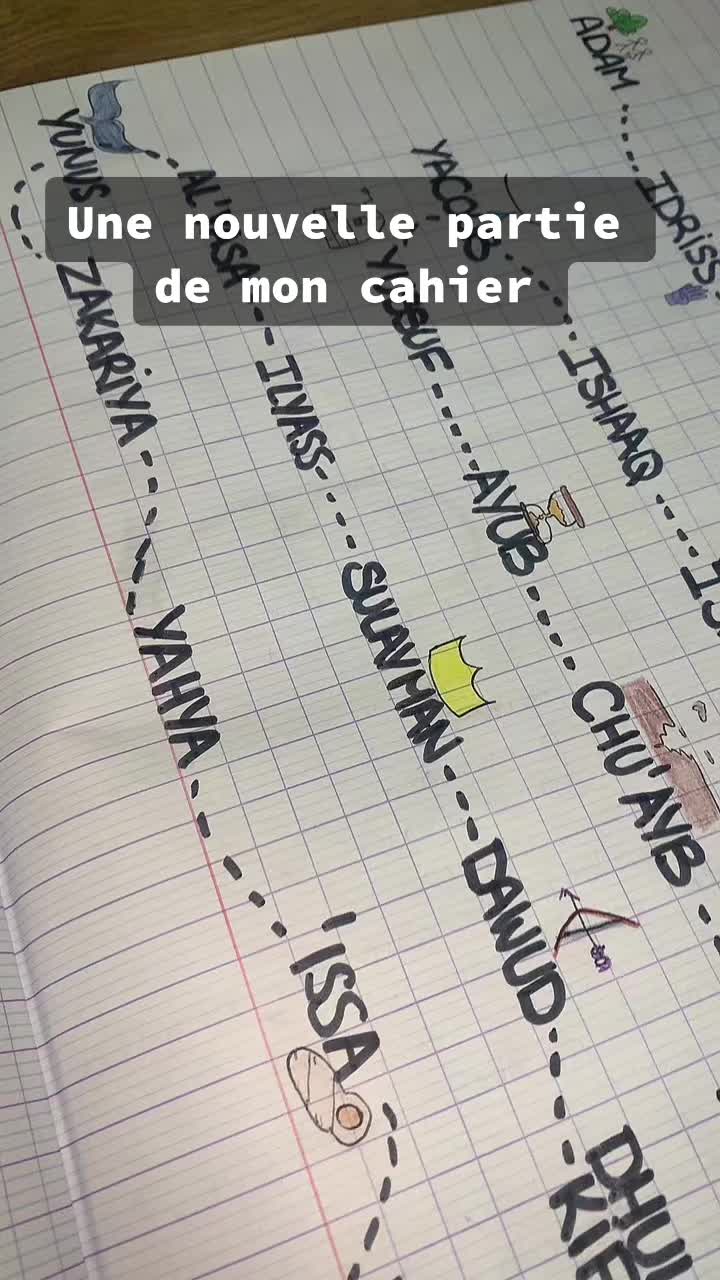 Une nouvelle partie
de mon cahier
ADAM
IDRISS
YACOUB
ISHAAQ
YUSUF
AYUB
CHU'AYB
AL'YASA
ILYASS
SULAYMAN
DAWUD
YUNUS
ZAKARIYA
YAHYA
'ISSA